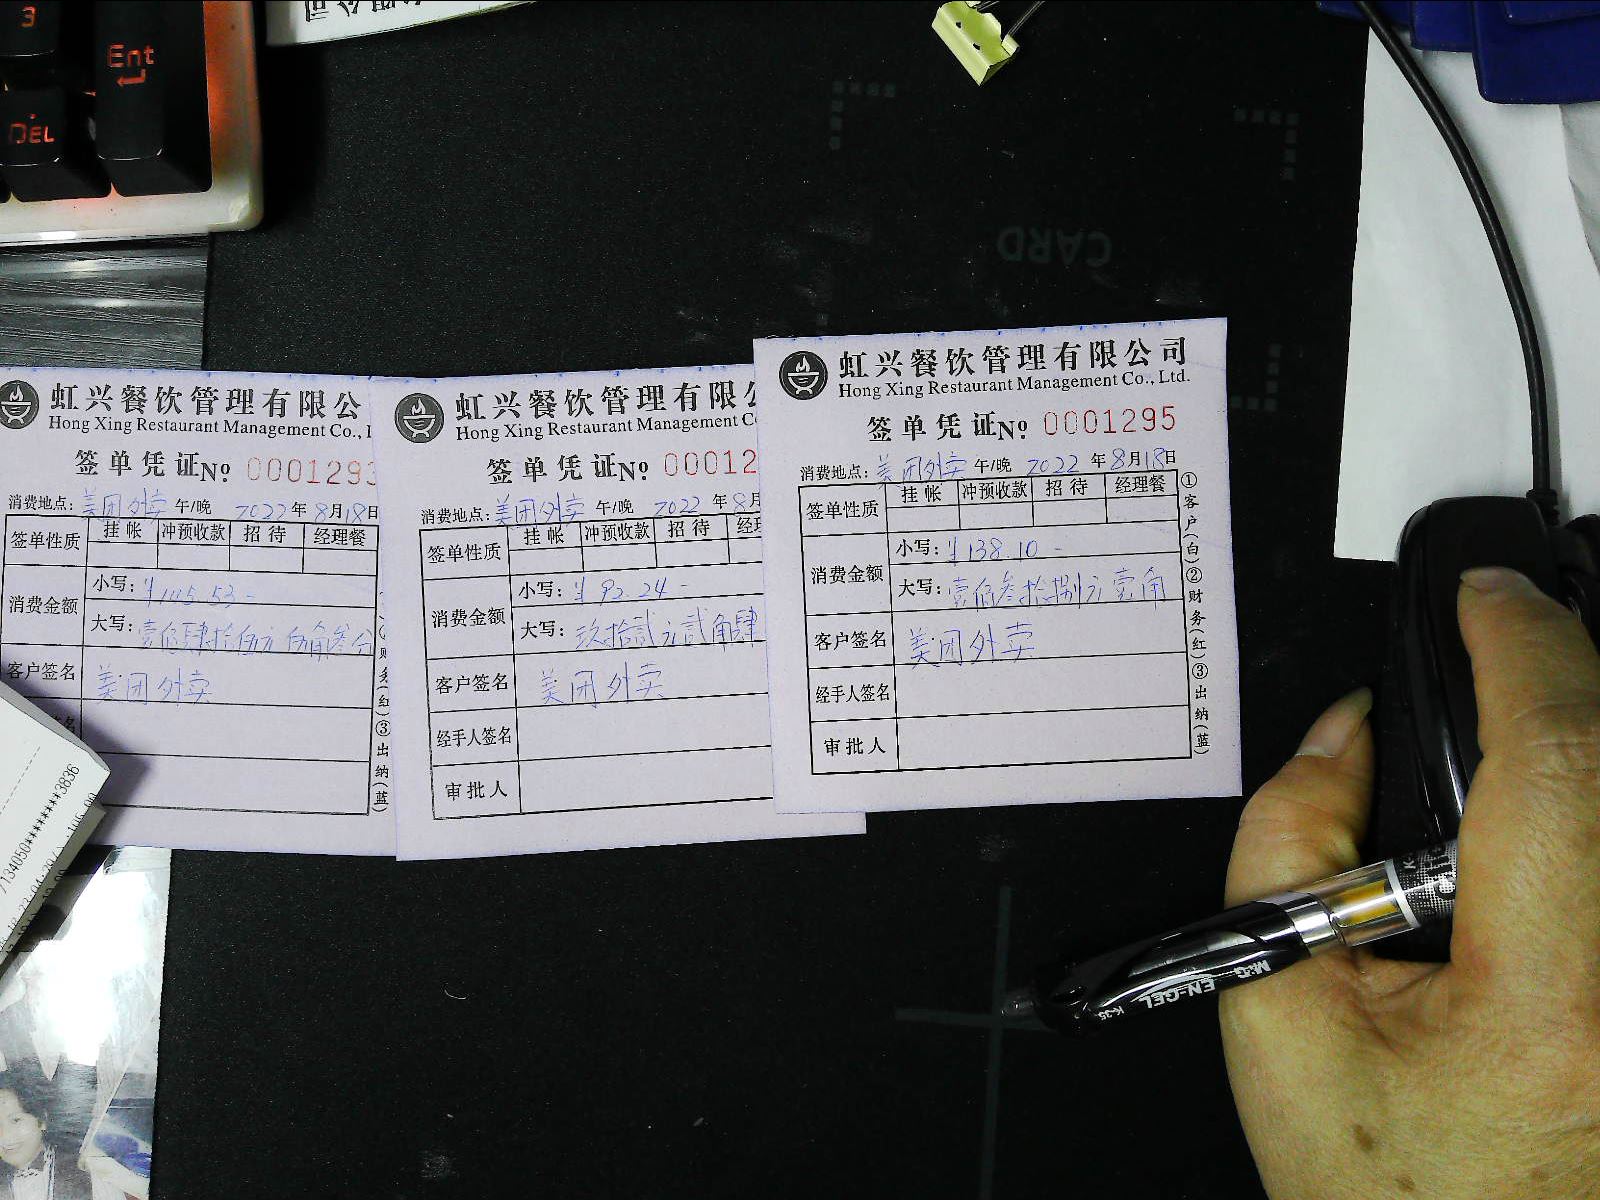 3
Ent
DEL
CARD
虹兴餐饮管理有限公
Hong Xing Restaurant Management Co.,
签单凭证No. 0001293
消费地点: 美团外卖 午/晚 2022年8月18日
签单性质 挂帐 冲预收款 招待 经理餐
消费金额 小写: ¥145.53-
大写: 壹佰肆拾伍元伍角叁分
客户签名 美团外卖
③出纳(蓝)
虹兴餐饮管理有限
Hong Xing Restaurant Management
签单凭证No. 00012
消费地点: 美团外卖 午/晚 2022年8月
签单性质 挂帐 冲预收款 招待
消费金额 小写: ¥92.24-
大写: 玖拾贰元贰角肆
客户签名 美团外卖
经手人签名
审批人
虹兴餐饮管理有限公司
Hong Xing Restaurant Management Co., Ltd.
签单凭证No. 0001295
消费地点: 美团外卖 午/晚 2022年8月18日
签单性质 挂帐 冲预收款 招待 经理餐
消费金额 小写: ¥138.10-
大写: 壹佰叁拾捌元壹角
客户签名 美团外卖
经手人签名
审批人
①客户(白)②财务(红)③出纳(蓝)
/134050*********3836
M&G
EN-GEL
K-35